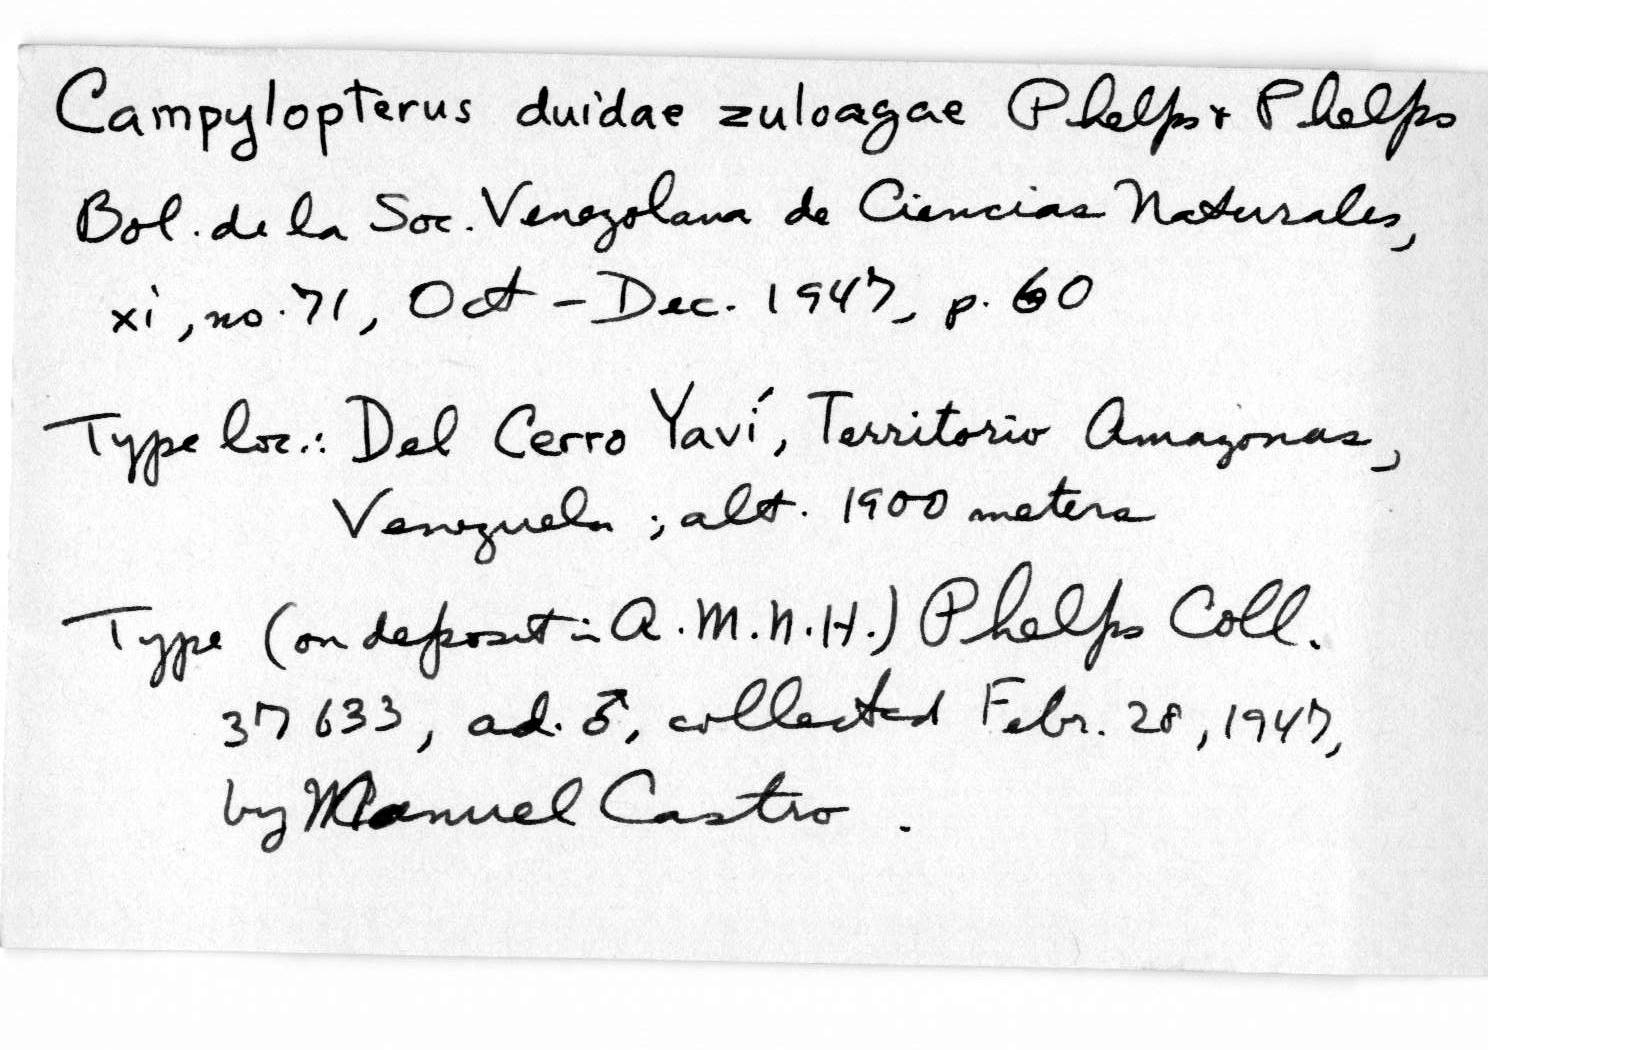 Campylopterus duidae zuloagae Phelps & Phelps
Bol. de la Soc. Venezolana de Ciencias Naturales,
xi, no. 71, Oct - Dec. 1947, p. 60
Type loc.: Del Cerro Yaví, Territorio Amazonas,
Venezuela ; alt. 1900 meters
Type (on deposit in A.M.N.H.) Phelps Coll.
37633, ad. ♂, collected Febr. 28, 1947,
by Manuel Castro .